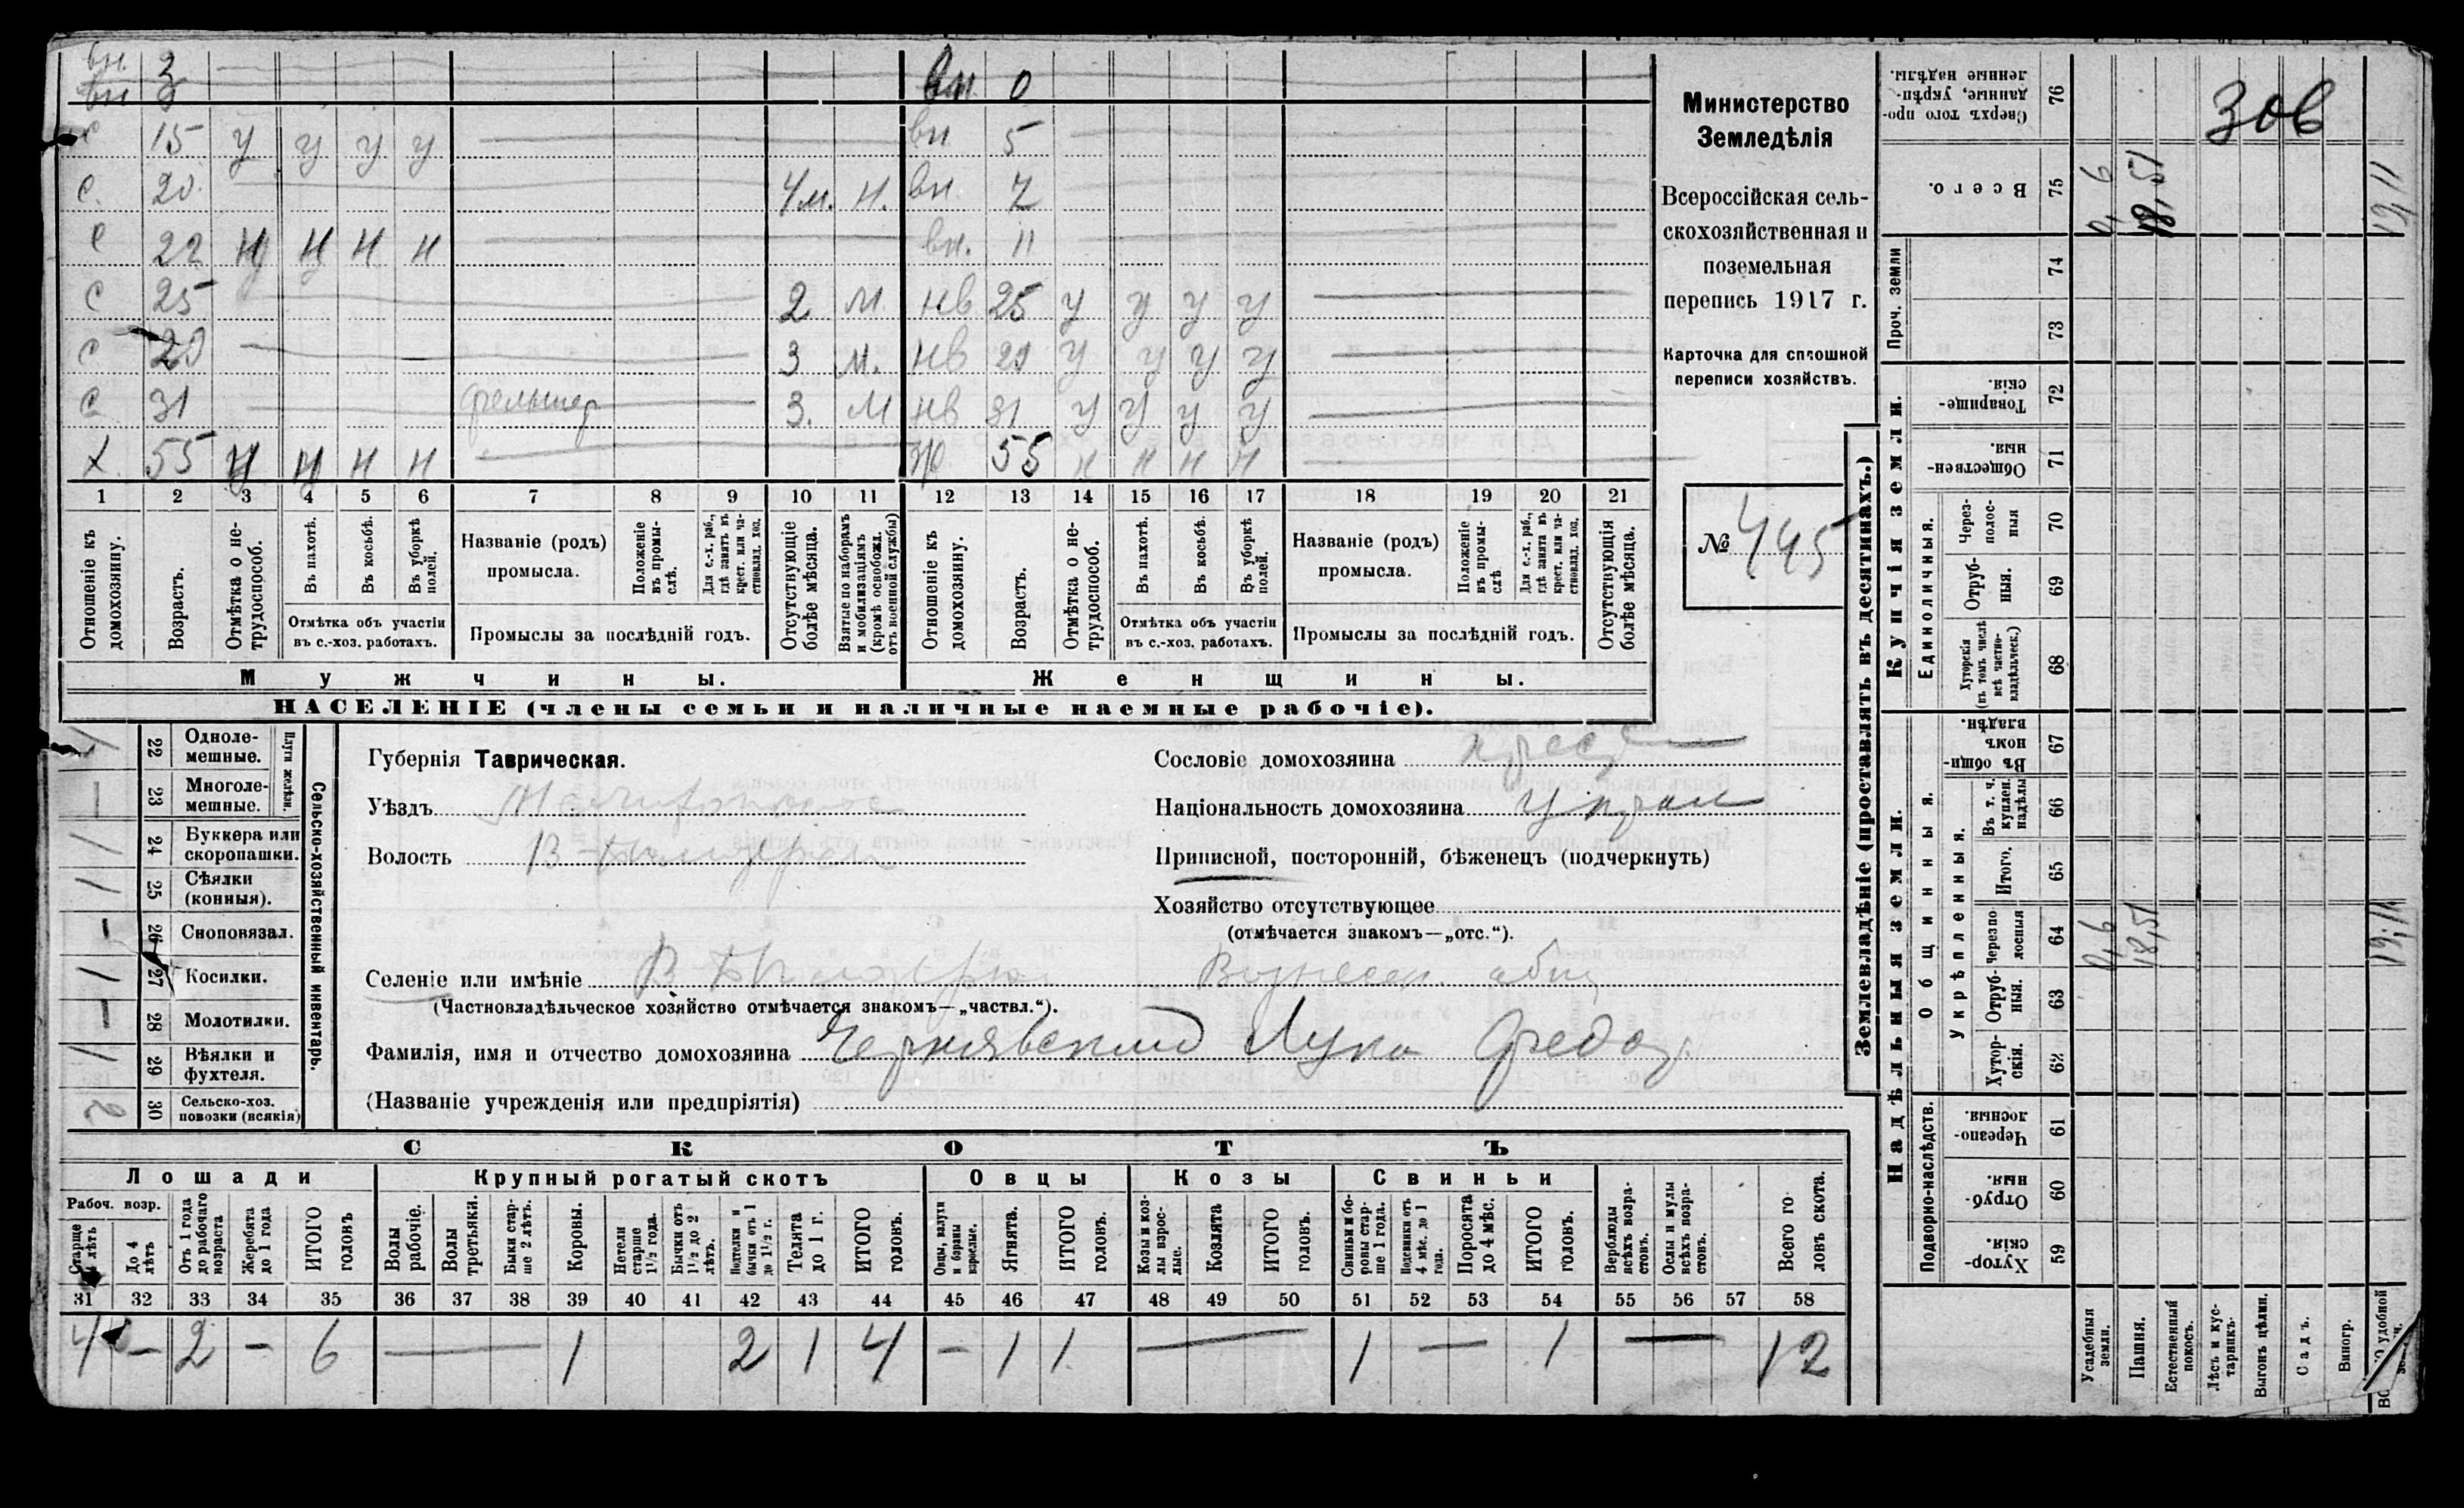 вн. 3 вн. 0
вн 3
с 15 у у у у вн 5
с. 20. 4м. н. вн. 7
с 22 н н н н вн. 11
с 25 2 м. нв 25 у у у у
с 29 3 м. нв 29 у у у у
с 31 фельшер 3. м нв 31 у у у у
х. 55 н н н н 55 н н н н
1 2 3 4 5 6 7 8 9 10 11 12 13 14 15 16 17 18 19 20 21
Отношеніе къ домохозяину.
Возрастъ.
Отмѣтка о нетрудоспособ.
Въ пахотѣ.
Въ косьбѣ.
Въ уборкѣ полей.
Отмѣтка объ участіи
въ с.-хоз. работахъ.
Названіе (родъ)
промысла.
Положеніе въ промыслѣ.
Для с.-х. раб., гдѣ занятъ въ крест. или частновлад. хоз.
Промыслы за послѣдній годъ.
Отсутствующіе болѣе мѣсяца.
Взятые по наборамъ и мобилизаціямъ (кромѣ освобожд. отъ военной службы)
Отношеніе къ домохозяину.
Возрастъ.
Отмѣтка о нетрудоспособ.
Въ пахотѣ.
Въ косьбѣ.
Въ уборкѣ полей.
Отмѣтка объ участіи
въ с.-хоз. работахъ.
Названіе (родъ)
промысла.
Положеніе въ промыслѣ
Для с.-х. раб., гдѣ занята въ крест. или частновлад. хоз.
Промыслы за послѣдній годъ.
Отсутствующія болѣе мѣсяца.
Мужчины. Женщины.
НАСЕЛЕНІЕ (члены семьи и наличные наемные рабочіе).
Министерство
Земледѣлія
Всероссійская сель-
скохозяйственная и
поземельная
перепись 1917 г.
Карточка для сплошной
переписи хозяйствъ.
№ 445
Сельско-хозяйственный инвентарь.
Плуги желѣзн.
22 Одноле-
мешные.
— 23 Многоле-
мешные.
1 24 Буккера или
скоропашки.
1 25 Сѣялки
(конныя).
— 26 Сноповязал.
1 27 Косилки.
— 28 Молотилки.
1 29 Вѣялки и
фухтеля.
2 30 Сельско-хоз.
повозки (всякія)
Губернія Таврическая.
Уѣздъ
Волость В-
Селеніе или имѣніе В- Вознесен. общ
(Частновладѣльческое хозяйство отмѣчается знакомъ—„частвл.“).
Фамилія, имя и отчество домохозяина Чернявский Лука Федор.
(Названіе учрежденія или предпріятія)
Сословіе домохозяина крест
Національность домохозяина Украи
Приписной, посторонній, бѣженецъ (подчеркнуть)
Хозяйство отсутствующее
(отмѣчается знакомъ—„отс.“).
СКОТЪ
Лошади Крупный рогатый скотъ Овцы Козы Свиньи
Рабоч. возр.
Старше 4 лѣтъ
До 4 лѣтъ
Отъ 1 года до рабочаго возраста
Жеребята до 1 года
ИТОГО головъ
Волы рабочіе.
Волы третьяки.
Быки старше 2 лѣтъ.
Коровы.
Нетели старше 1½ года.
Бычки отъ 1½ до 2 лѣтъ.
Подтелки и бычки отъ 1 до 1½ г.
Телята до 1 г.
ИТОГО головъ.
Овцы, валухи и бараны взрослые.
Ягнята.
ИТОГО головъ.
Козы и козлы взрослые.
Козлята
ИТОГО головъ.
Свиньи и боровы старше 1 года.
Подсвинки отъ 4 мѣс. до 1 года.
Поросята до 4 мѣс.
ИТОГО головъ.
Верблюды всѣхъ возрастовъ.
Ослы и мулы всѣхъ возрастовъ.
Всего головъ скота.
31 32 33 34 35 36 37 38 39 40 41 42 43 44 45 46 47 48 49 50 51 52 53 54 55 56 57 58
4 — 2 — 6 — 1 2 1 4 — 1 1 — 1 — 1 — 12
Землевладѣніе (проставлять въ десятинахъ.)
Надѣльныя земли. Купчія земли. Проч. земли
Подворно-наслѣдств.
Общинныя.
Укрѣпленныя.
Единоличныя.
Хуторскія. 59
Отрубныя. 60
Черезполосныя. 61
Хуторскія. 62
Отрубныя. 63
Черезполосныя 64
Итого. 65
Въ т. ч. куплен. надѣлы 66
Въ общинномъ владѣн. 67
Хуторскія (въ томъ числѣ всѣ частновладѣльческ.) 68
Отрубныя. 69
Черезполосныя 70
Общественныя. 71
Товарищескія. 72
73
74
Всего. 75
Сверхъ того проданные, укрѣпленные надѣлы. 76
Усадебныя земли. 0,6 0,6
Пашня. 18,51 18,51
Естественный покосъ.
Лѣсъ и кустарникъ.
Выгонъ цѣлин.
Садъ.
Виногр.
удобной 19,11 19,11
306